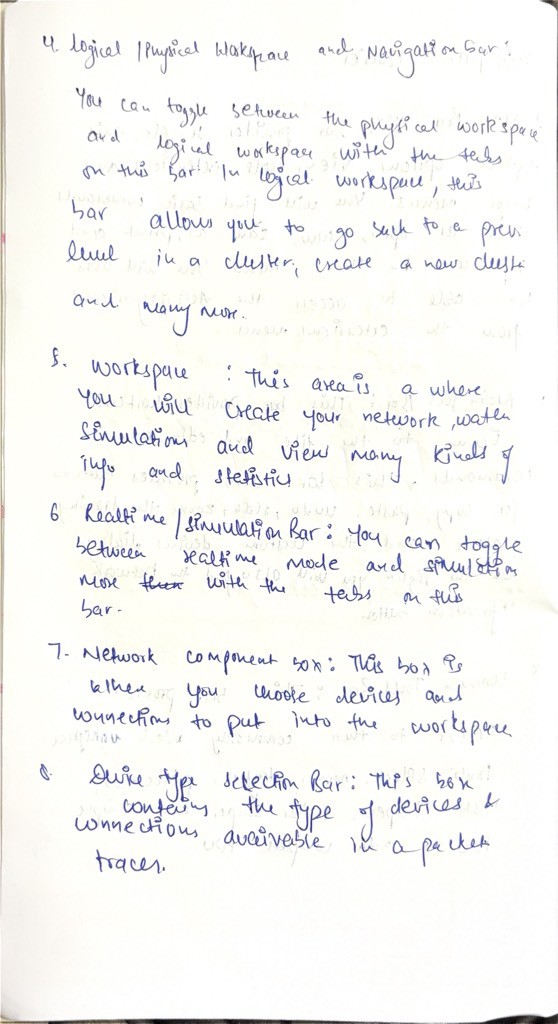 4. Logical /Physical Workspace and Navigation bar:
You can toggle between the physical workspace
and logical workspace with the tabs
on this bar. In logical workspace, this
bar allows you to go back to a prev
level in a cluster, create a new cluste
and many more.
5. Workspace : This area is a where
you will create your network, watch
simulations and view many kinds of
info and statistics
6 Realtime /simulation Bar: You can toggle
between realtime mode and simulation
more with the tabs on this
bar.
7. Network component box: This box is
when you choose devices and
connections to put into the workspace
8. Device type selection Bar: This box
contains the type of devices &
connections available in a packet
tracer.